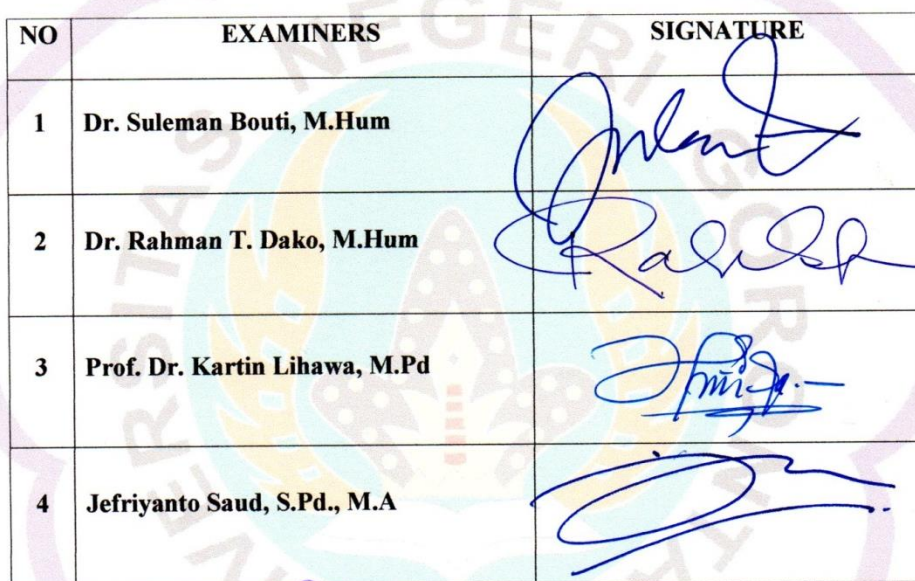 NO EXAMINERS SIGNATURE
1 Dr. Suleman Bouti, M.Hum
2 Dr. Rahman T. Dako, M.Hum
3 Prof. Dr. Kartin Lihawa, M.Pd
4 Jefriyanto Saud, S.Pd., M.A